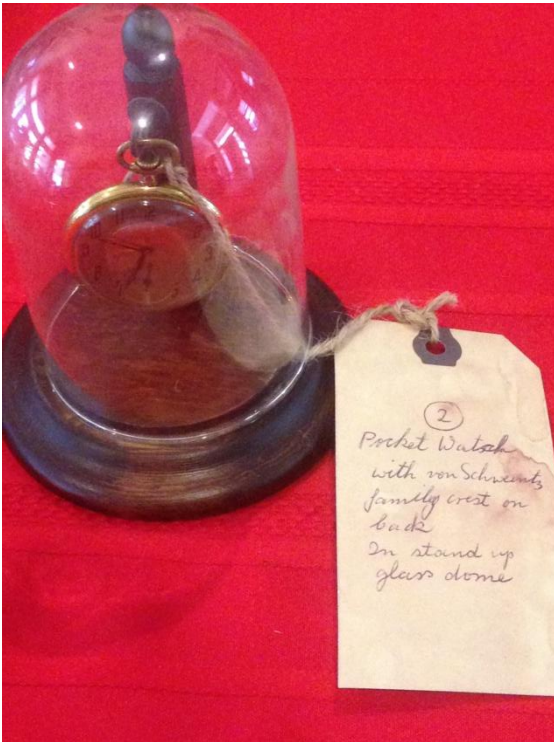 2
Pocket Watch
with von Schweinitz
family crest on
back
In stand up
glass dome